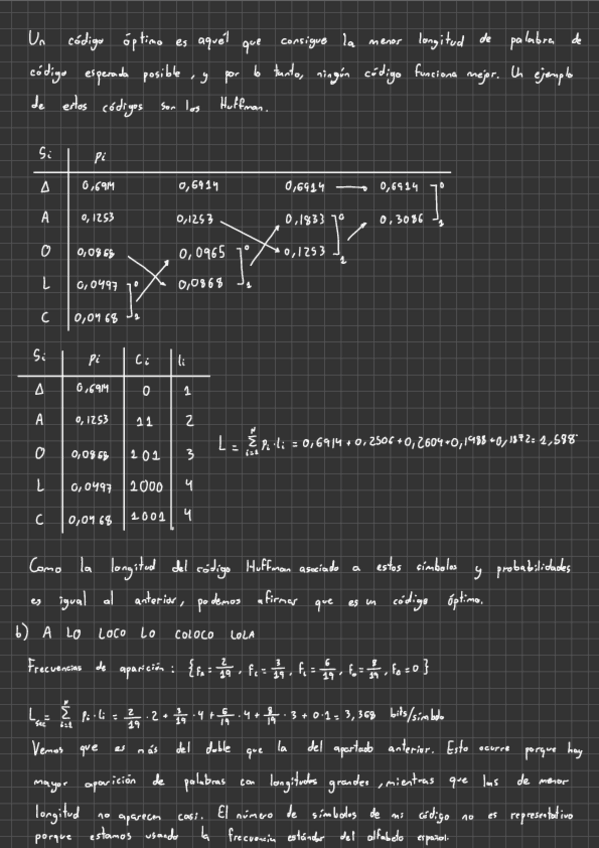 Un código óptimo es aquél que consigue la menor longitud de palabra de
código esperada posible, y por lo tanto, ningún código funciona mejor. Un ejemplo
de estos códigos son los Huffman.
Si pi
Δ 0,6914 0,6914 0,6914 → 0,6914 0
A 0,1253 0,1253 0,1833 0 0,3086 1
O 0,0868 0,0965 0 0,1253 1
L 0,0497 0 0,0868 1
C 0,0468 1
Si pi Ci li
Δ 0,6914 0 1
A 0,1253 11 2
O 0,0868 101 3
L 0,0497 1000 4
C 0,0468 1001 4
L = Σ i=1 N pi·li = 0,6914+0,2506+0,2604+0,1988+0,1872=1,588
Como la longitud del código Huffman asociado a estos símbolos y probabilidades
es igual al anterior, podemos afirmar que es un código óptimo.
b) A LO LOCO LO COLOCO LOLA
Frecuencias de aparición: {fA=2/19, fC=3/19, fL=6/19, fo=8/19, fΔ=0}
Lsec= Σ i=1 N pi·li = 2/19·2+3/19·4+6/19·4+8/19·3+0·1=3,368 bits/símbolo
Vemos que es más del doble que la del apartado anterior. Esto ocurre porque hay
mayor aparición de palabras con longitudes grandes, mientras que las de menor
longitud no aparecen casi. El número de símbolos de mi código no es representativo
porque estamos usando la frecuencia estándar del alfabeto español.